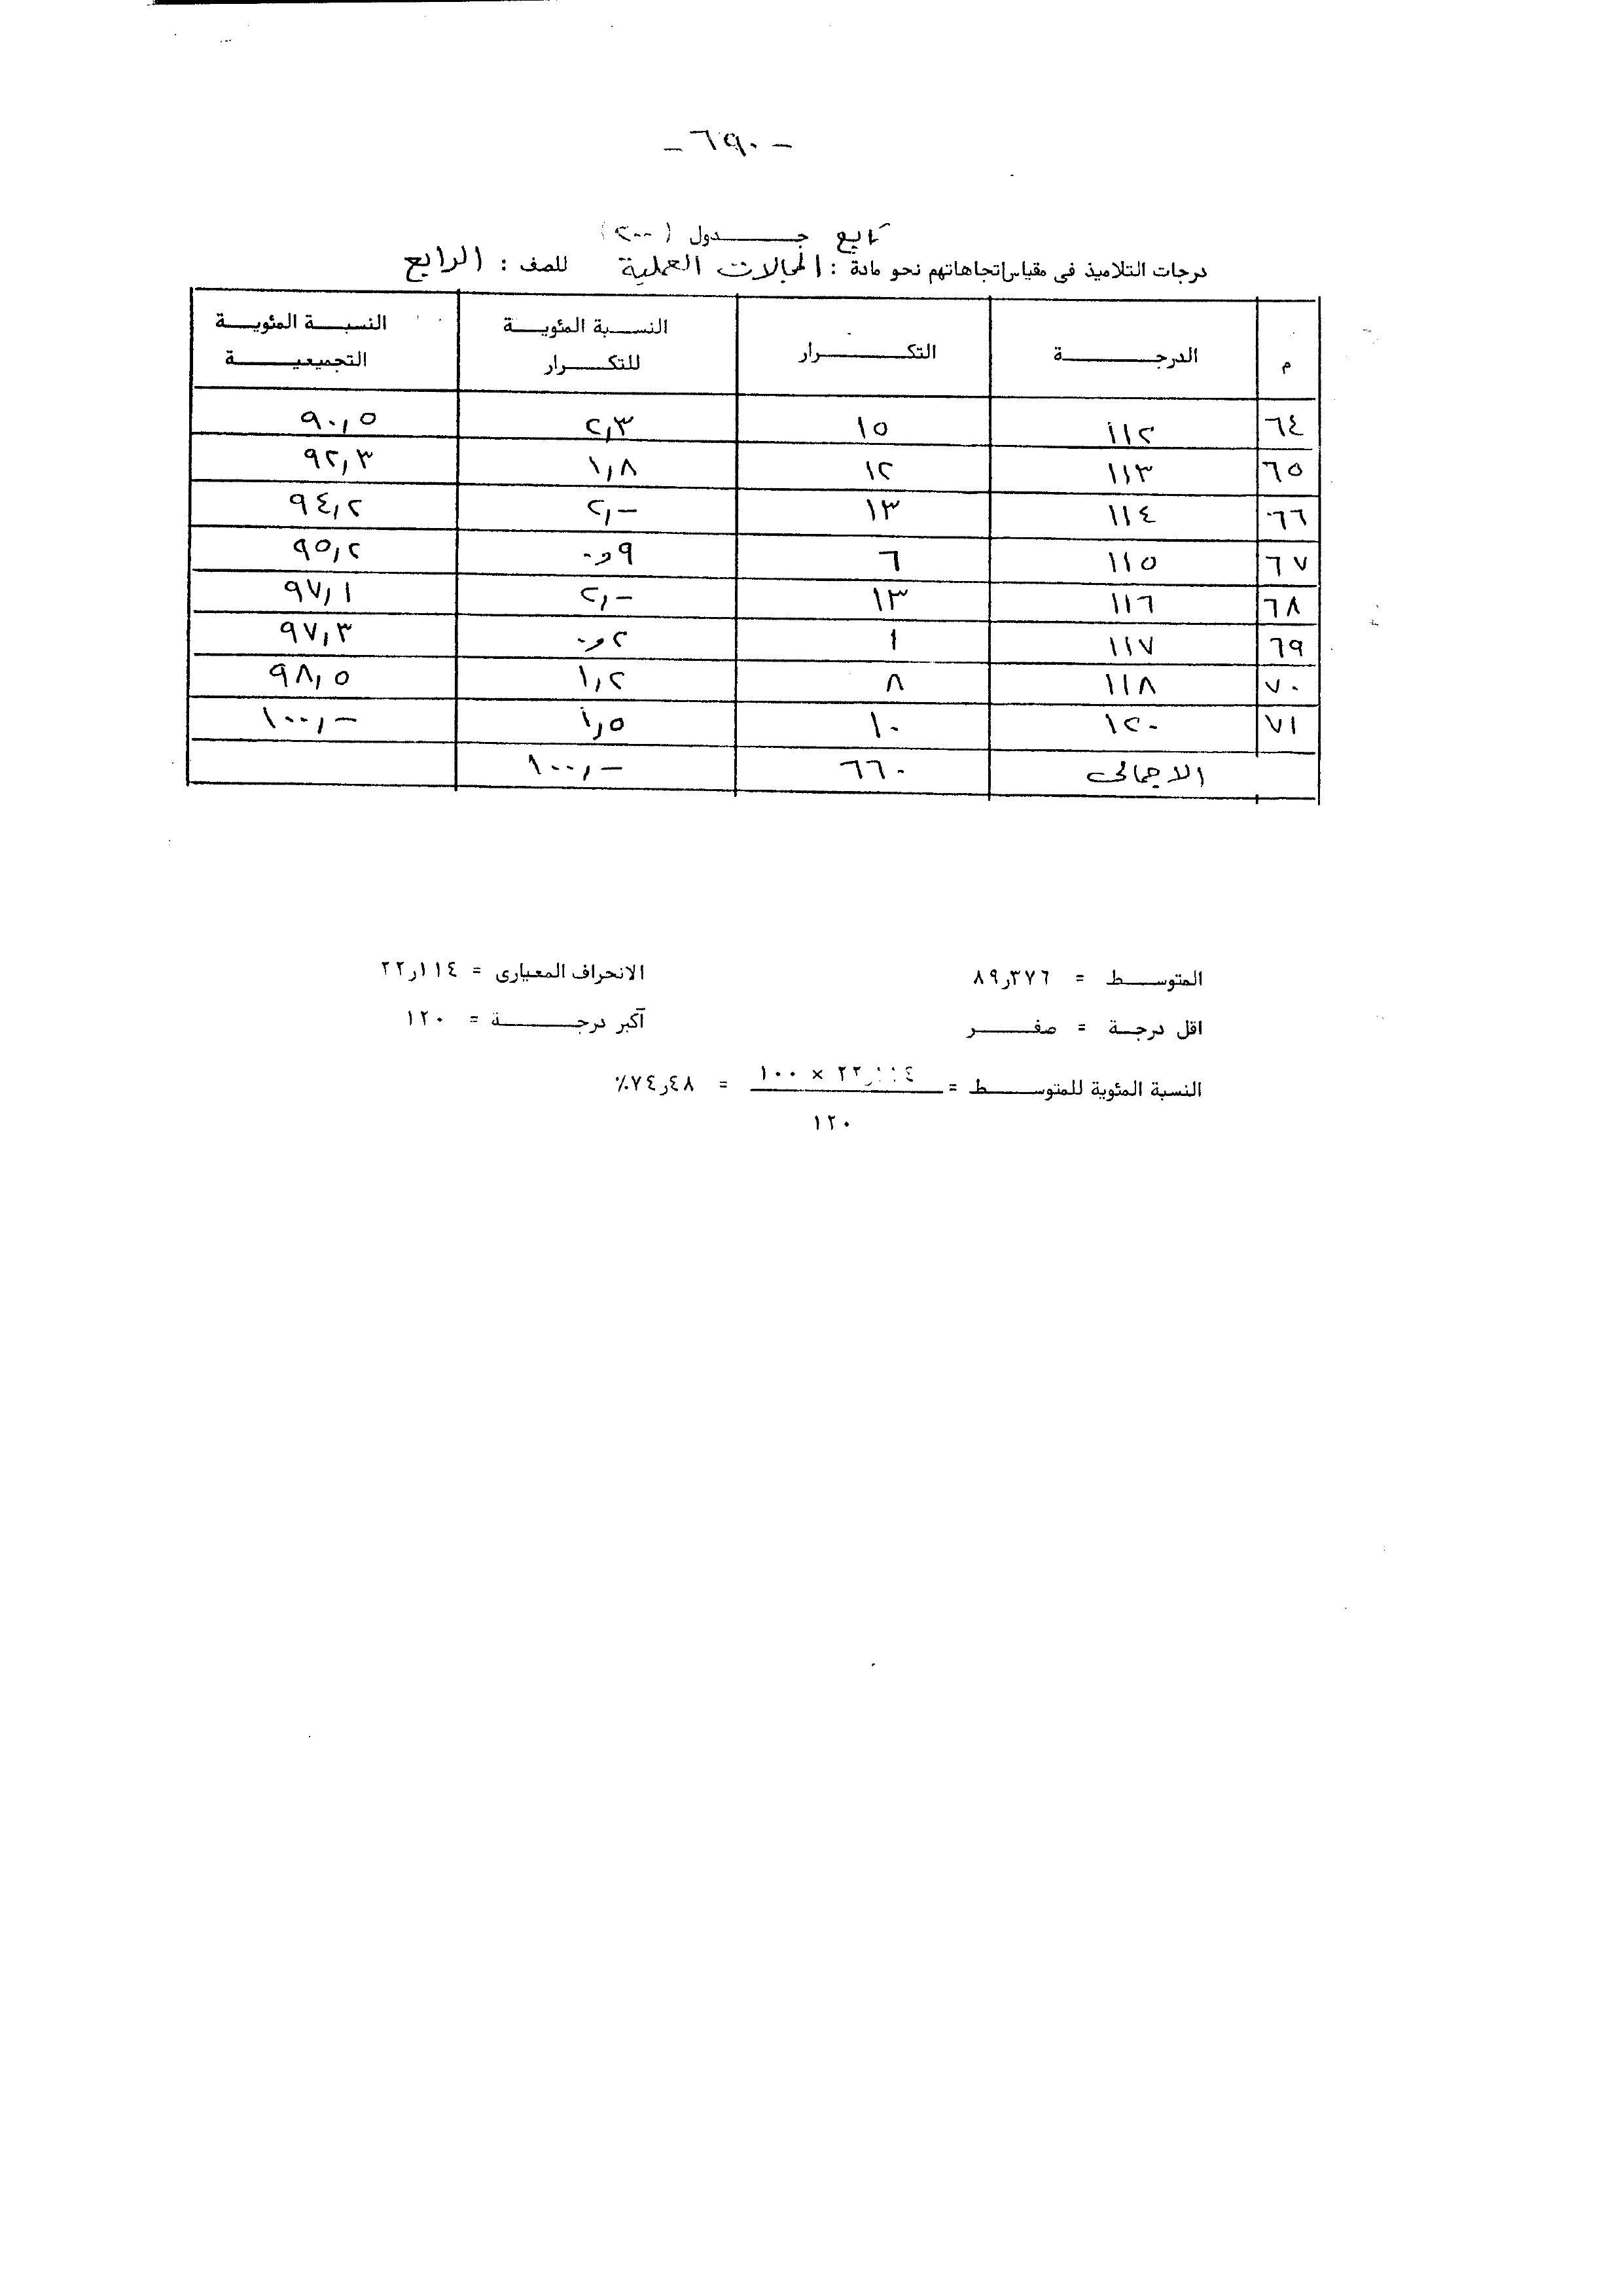 - ٦٩٠ -
تابع جدول (٢٠٠)
درجات التلاميذ فى مقياس اتجاهاتهم نحو مادة : المجالات العملية للصف : الرابع
م الدرجة التكرار النسبة المئوية للتكرار النسبة المئوية التجميعية
٦٤ ١١٢ ١٥ ٢,٣ ٩٠,٥
٦٥ ١١٣ ١٢ ١,٨ ٩٢,٣
٦٦ ١١٤ ١٣ ٢,- ٩٤,٢
٦٧ ١١٥ ٦ ٠,٩ ٩٥,٢
٦٨ ١١٦ ١٣ ٢,- ٩٧,١
٦٩ ١١٧ ١ ٠,٢ ٩٧,٣
٧٠ ١١٨ ٨ ١,٢ ٩٨,٥
٧١ ١٢٠ ١٠ ١,٥ ١٠٠,-
الاجمالى ٦٦٠ ١٠٠,-
المتوسط = ٨٩٫٣٧٦ الانحراف المعيارى = ٢٢٫١١٤
اقل درجة = صفر أكبر درجة = ١٢٠
النسبة المئوية للمتوسط = ٢٢٫١١٤ × ١٠٠ = ٧٤٫٤٨٪
١٢٠